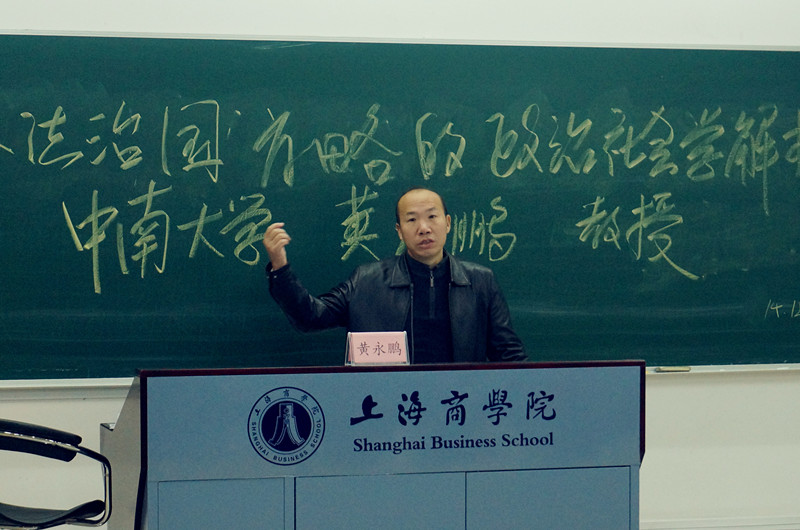 法治国方略的政治社会学解
中南大学 黄 鹏 教授
14.12
黄永鹏
上海商學院
SHANGHAI BUSINESS SCHOOL
上海商學院
Shanghai Business School